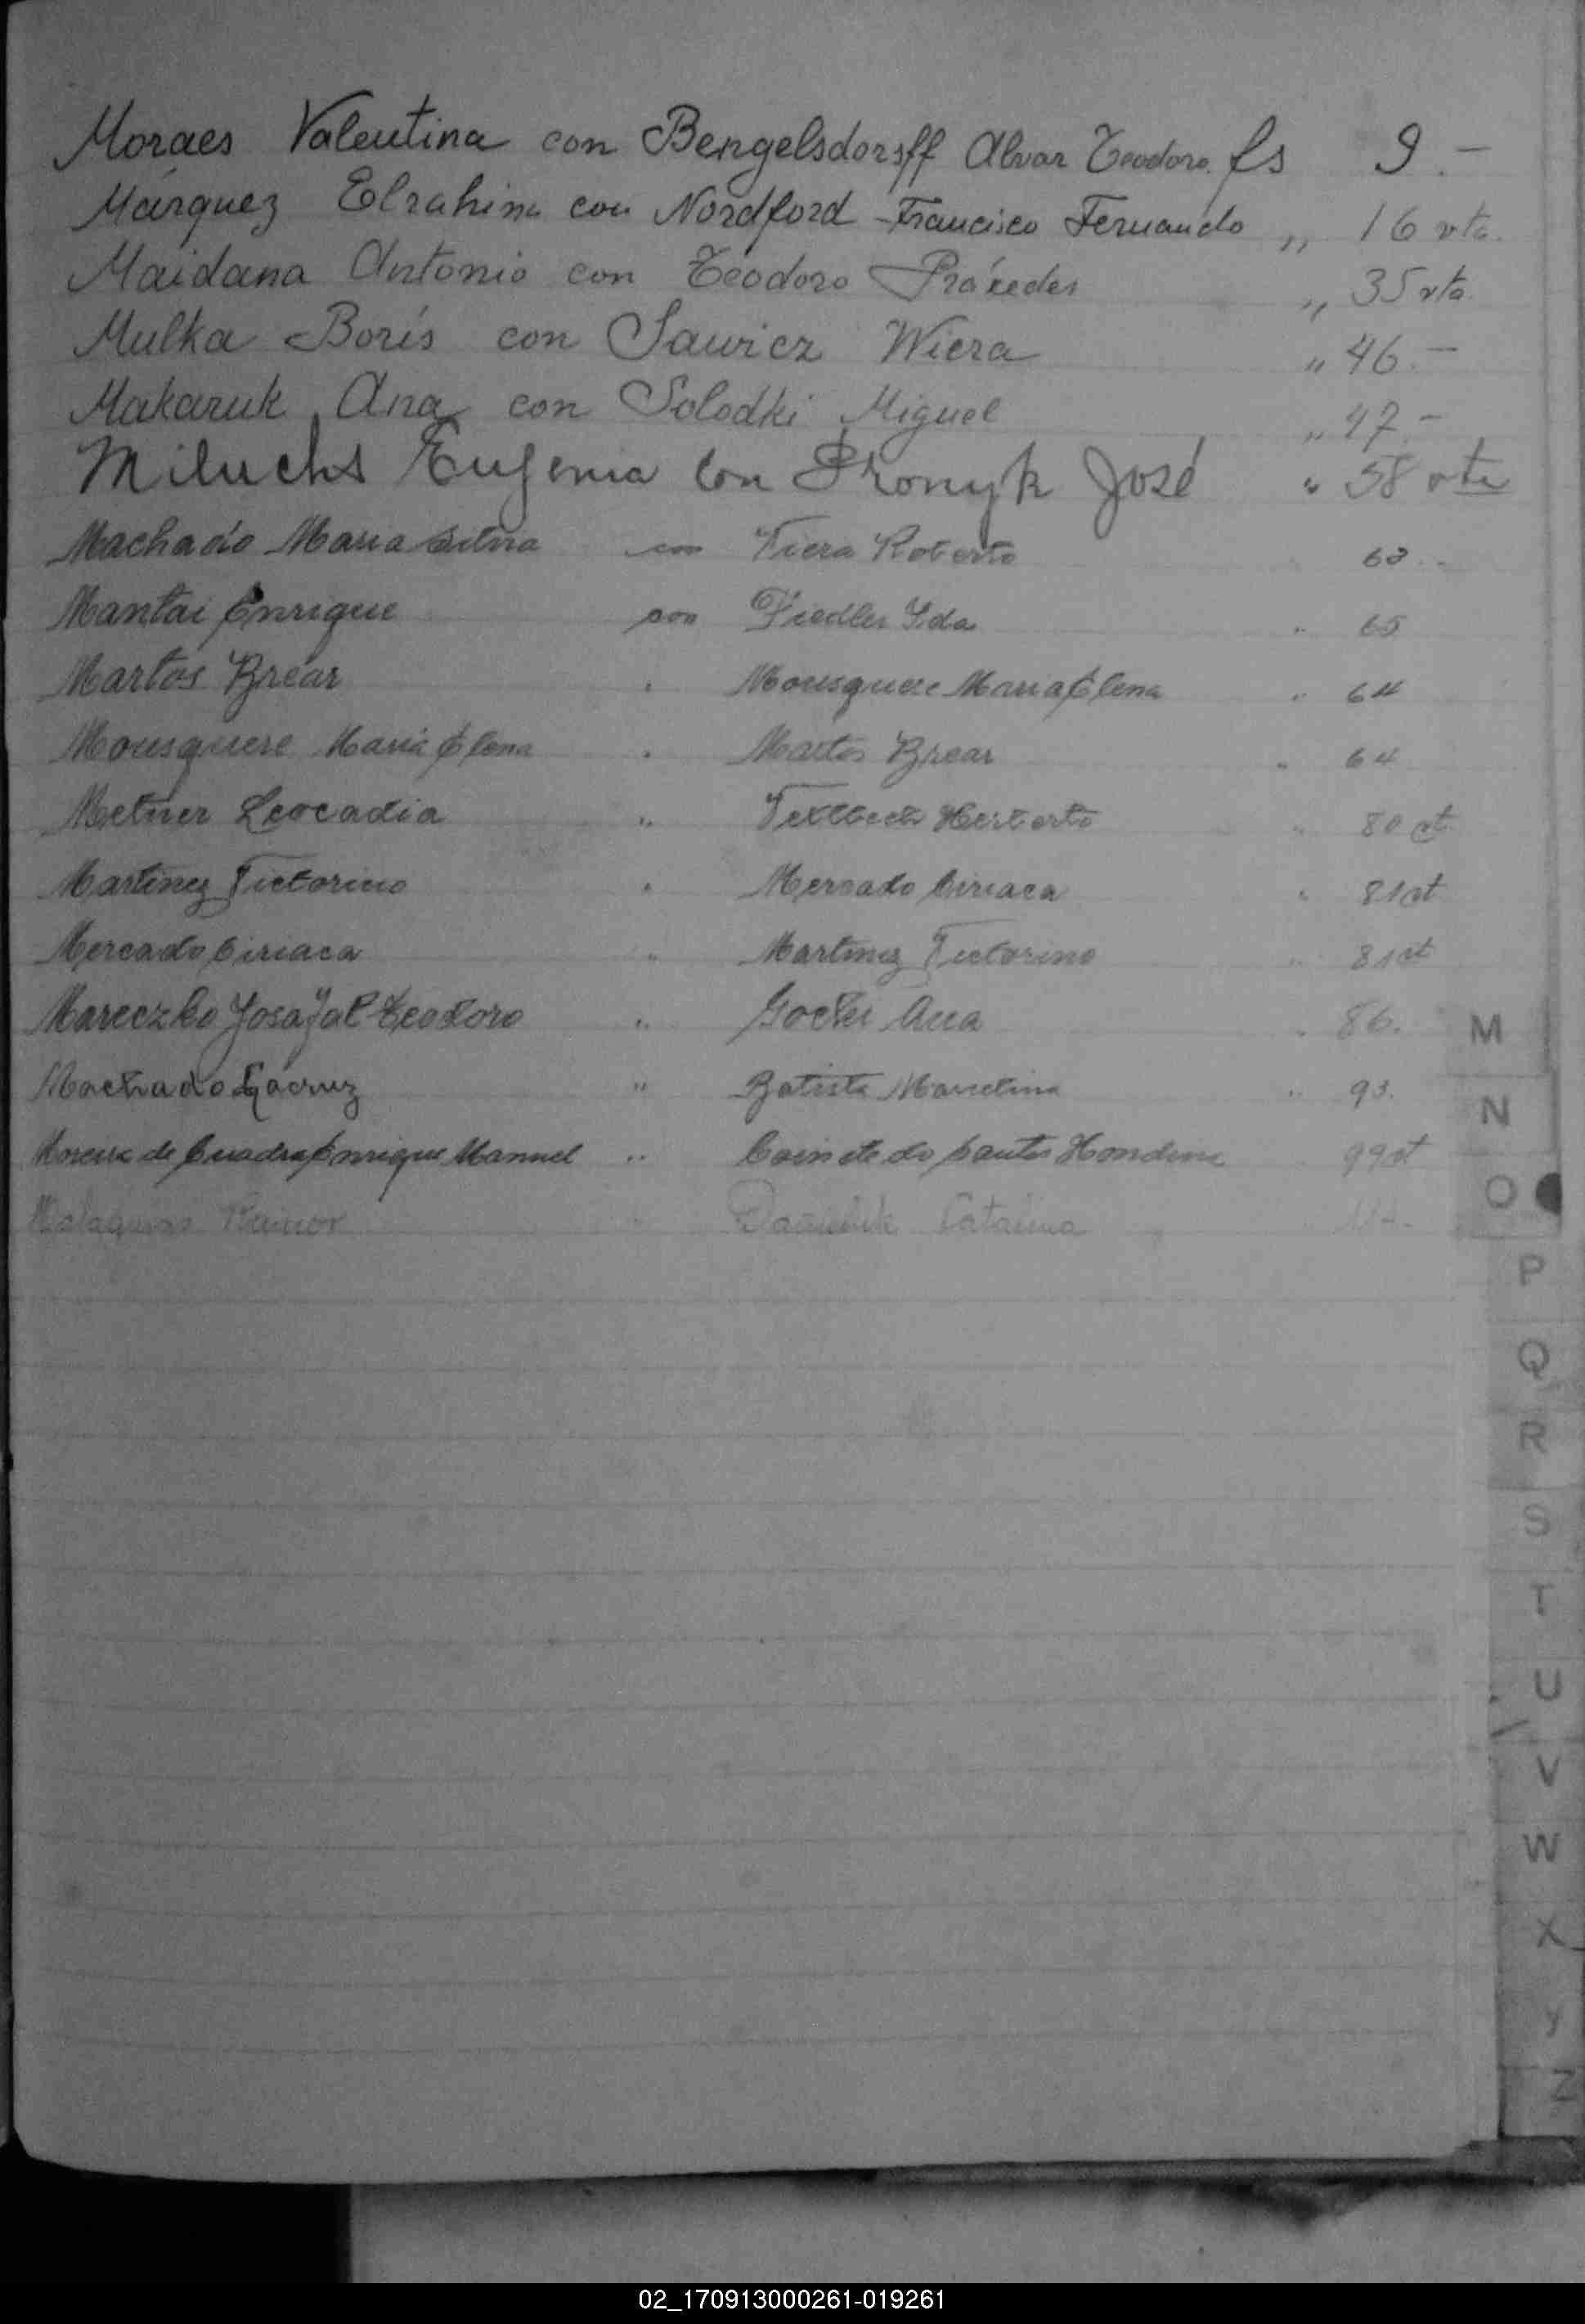 Moraes Valentina con Bengelsdorff Alvar Teodoro. fs 9.-
Márquez Elrahina con Nordford Francisco Fernando " 16 vta.
Maidana Antonio con Teodoro Práxedes " 35 vta.
Mulka Borís con Sawicz Wiera " 46.-
Makaruk Ana con Solodki Miguel " 47.-
Miluchs Eugenia con Pronyk José " 58 vta
Machado Maria con Viera Roberto 63
Mantai Enrique con Fiedler Ida " 65
Martos Brear " Mousquere Maria Elena " 64
Mousquere Maria Elena " Martos Brear " 64
Metner Leocadia " Herberto " 80 vt
Martinez Victorino " Mercado Ciriaca " 81 vt
Mercado Ciriaca " Martinez Victorino " 81 vt
Mareczko Josafat Teodoro " Ana " 86.
Machado Lacruz " Batista Marcelina " 93.
Moreira de Cuadra Enrique Manuel " dos Santos 99 vt
Ramon " Catalina
M
N
O
P
Q
R
S
T
U
V
W
X
Y
Z
02_170913000261-019261